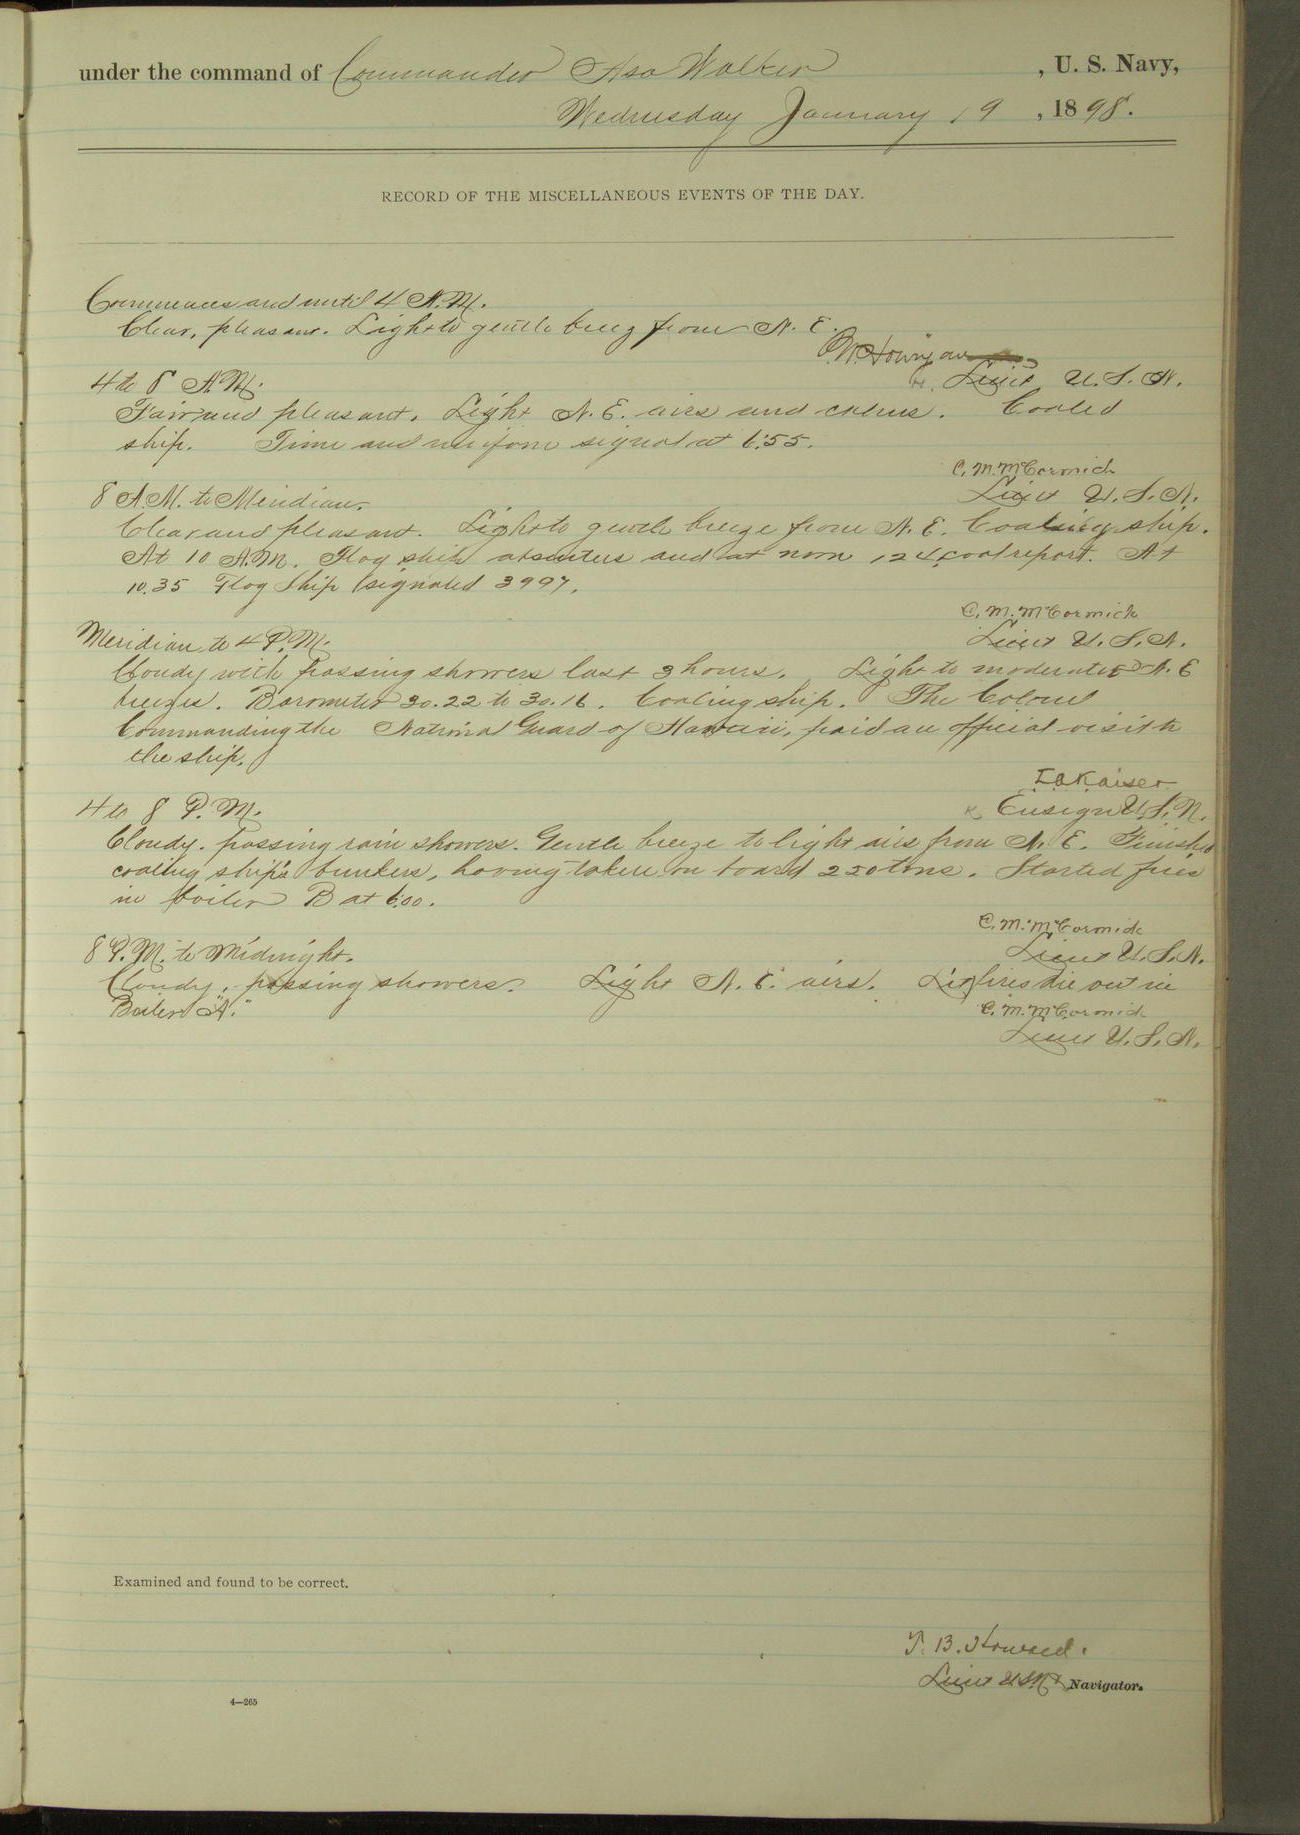 under the command of Commander Asa Walker, U. S. Navy,
Wednesday January 19, 1898.
RECORD OF THE MISCELLANEOUS EVENTS OF THE DAY.
Commences and until 4 A.M.
Clear, pleasant. Light to gentle breeze from N. E.
P.W. Hourigan
4 to 8 A.M. Lieut U.S.N.
Fair and pleasant. Light N.E. airs and calms. Coaled
ship. Time and uniform signal at 6:55.
C.M. McCormick
8 A.M. to Meridian. Lieut U.S.N.
Clear and pleasant. Light to gentle breeze from N.E. Coaling ship.
At 10 A.M. Flag ship absentees and at noon 124, coal report. At
10.35 Flag Ship signaled 3997.
C.M. McCormick
Meridian to 4 P.M. Lieut U.S.N.
Cloudy with passing showers last 3 hours. Light to moderate N. E
breezes. Barometer 30.22 to 30.16. Coaling ship. The Colonel
Commanding the National Guard of Hawaii, paid an official visit to
the ship.
L A Kaiser
4 to 8 P.M. Ensign U.S.N.
Cloudy. passing rain showers. Gentle breeze to light airs from N. E. Finished
coaling ship's bunkers, having taken on board 250 tons. Started fires
in boiler B at 6:00.
C.M. McCormick
8 P.M. to Midnight. Lieut U.S.N.
Cloudy, passing showers. Light N. E. airs. Let fires die out in
Boiler "A." C.M. McCormick
Lieut U.S.N.
Examined and found to be correct.
T. B. Howard.
Lieut U.S.N. Navigator.
4—265